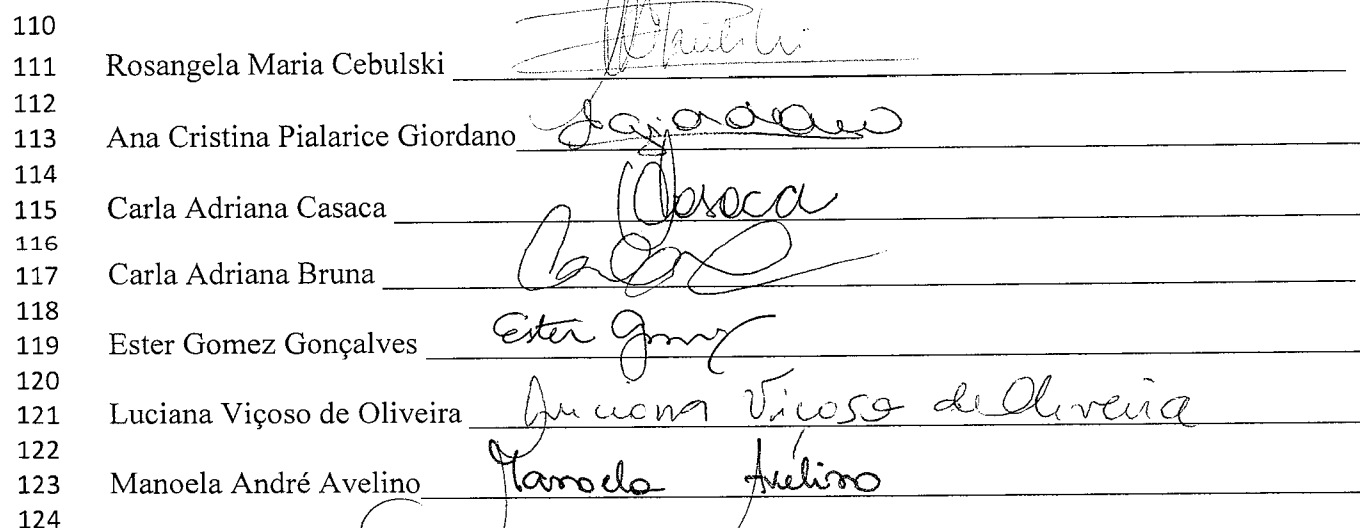 110
111 Rosangela Maria Cebulski
112
113 Ana Cristina Pialarice Giordano
114
115 Carla Adriana Casaca Casaca
116
117 Carla Adriana Bruna
118
119 Ester Gomez Gonçalves Ester Gomez
120
121 Luciana Viçoso de Oliveira Luciana Viçoso de Oliveira
122
123 Manoela André Avelino Manoela Avelino
124